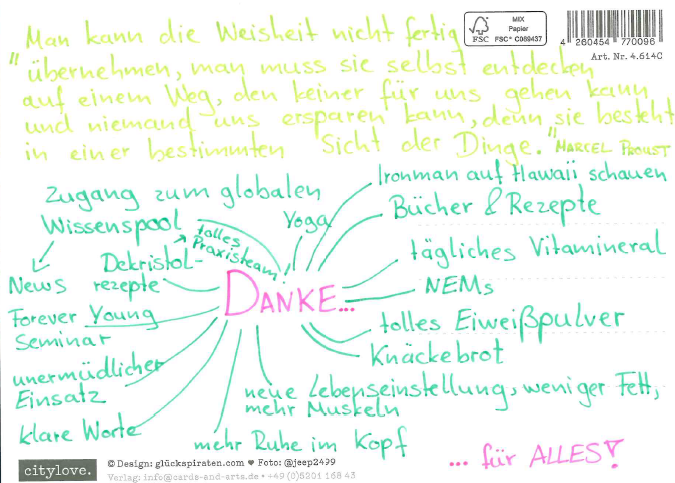 MIX
Papier
FSC
FSC® C089437
4 260454 770096
Art. Nr. 4.614C
Man kann die Weisheit nicht fertig
"übernehmen, man muss sie selbst entdecken
auf einem Weg, den keiner für uns gehen kann
und niemand uns ersparen kann, denn sie besteht
in einer bestimmten Sicht der Dinge." MARCEL PROUST
Zugang zum globalen
Wissenspool
tolles
Praxisteam!
Yoga
Ironman auf Hawaii schauen
Bücher & Rezepte
tägliches Vitamineral
NEMs
tolles Eiweißpulver
Knäckebrot
DANKE...
News
Dekristol-
rezepte
Forever Young
Seminar
unermüdlicher
Einsatz
klare Worte
mehr Ruhe im Kopf
neue Lebenseinstellung, weniger Fett,
mehr Muskeln
... für ALLES!
citylove.
© Design: glückspiraten.com ♥ Foto: @jeep2499
Verlag: info@cards-and-arts.de • +49 (0)5201 168 43